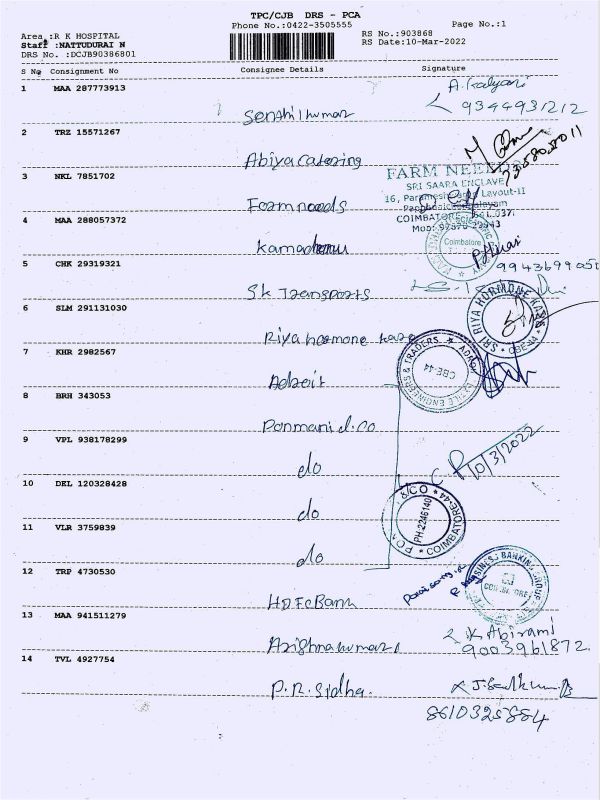 TPC/CJB DRS - PCA
Phone No.:0422-3505555
Page No.:1
Area :R K HOSPITAL
Staff :NATTUDURAI N
DRS No. :DCJB90386801
RS No.:903868
RS Date:10-Mar-2022
S No Consignment No Consignee Details Signature
1 MAA 287773913 Senthilkumar A. Kalyani
9344931212
2 TRZ 15571267 Abiya Catering
3 NKL 7851702 Farm needs
FARM NEEDS
SRI SAARA ENCLAVE
16, Layout-II
COIMBATORE
4 MAA 288057372
Coimbatore
5 CHK 29319321 SK Transports
6 SLM 291131030 Riya hormone
SRI RIYA HORMONE CBE-44
7 KHR 2982567
ENGINEERS & TRADERS
CBE-44
8 BRH 343053 Ponmani d.co
9 VPL 938178299 do
10/3/2022
10 DEL 120328428 do
COIMBATORE-44
PH:2246140
11 VLR 3759839 do
12 TRP 4730530 HDFC Bank
BUSINESS BANKING GROUP
COIMBATORE
13 MAA 941511279 K Abirami
9003961872
14 TVL 4927754 P.R. Sidha.
8610325884